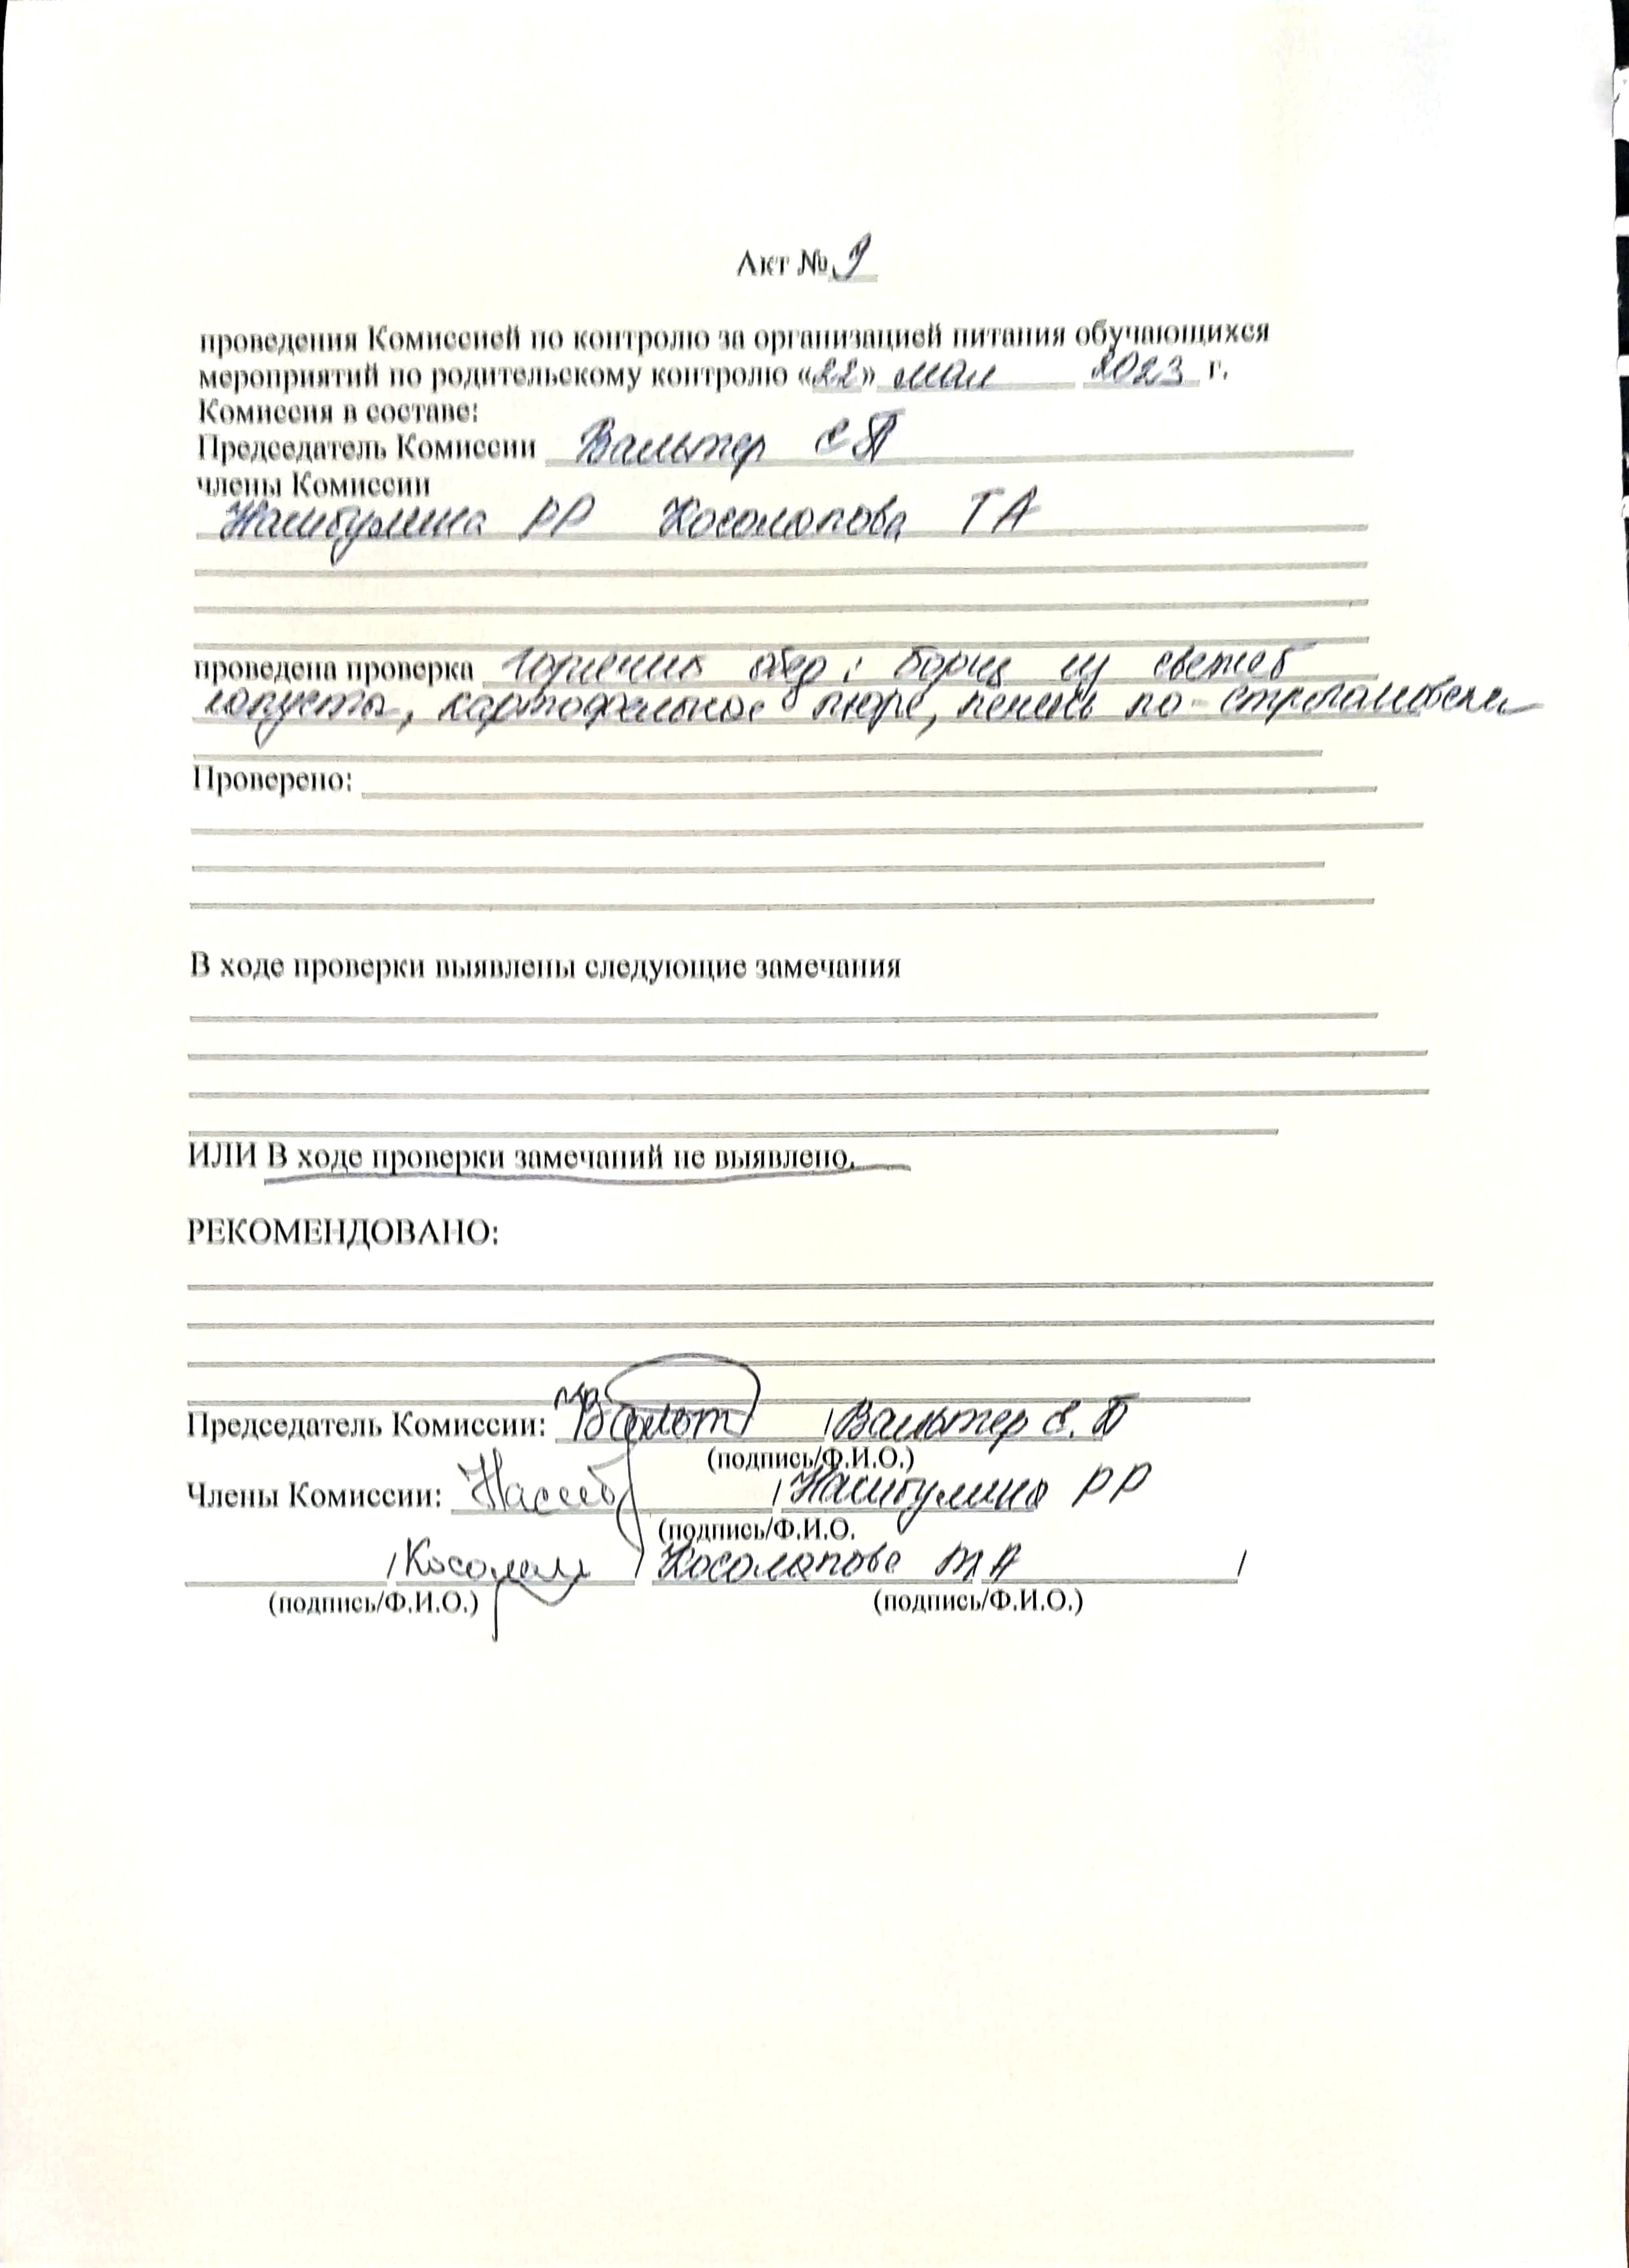 Акт № 9
проведения Комиссией по контролю за организацией питания обучающихся
мероприятий по родительскому контролю «22» мая 2023 г.
Комиссия в составе:
Председатель Комиссии Вальтер Е П
члены Комиссии
РР Косолапова Т А
проведена проверка горячий обед: борщ из свежей
капусты, картофельное пюре, печень по-строгановски
Проверено:
В ходе проверки выявлены следующие замечания
ИЛИ В ходе проверки замечаний не выявлено.
РЕКОМЕНДОВАНО:
Председатель Комиссии: / Вальтер Е. П
(подпись/Ф.И.О.)
Члены Комиссии: / РР
(подпись/Ф.И.О.
/ / Косолапова Т А /
(подпись/Ф.И.О.) (подпись/Ф.И.О.)